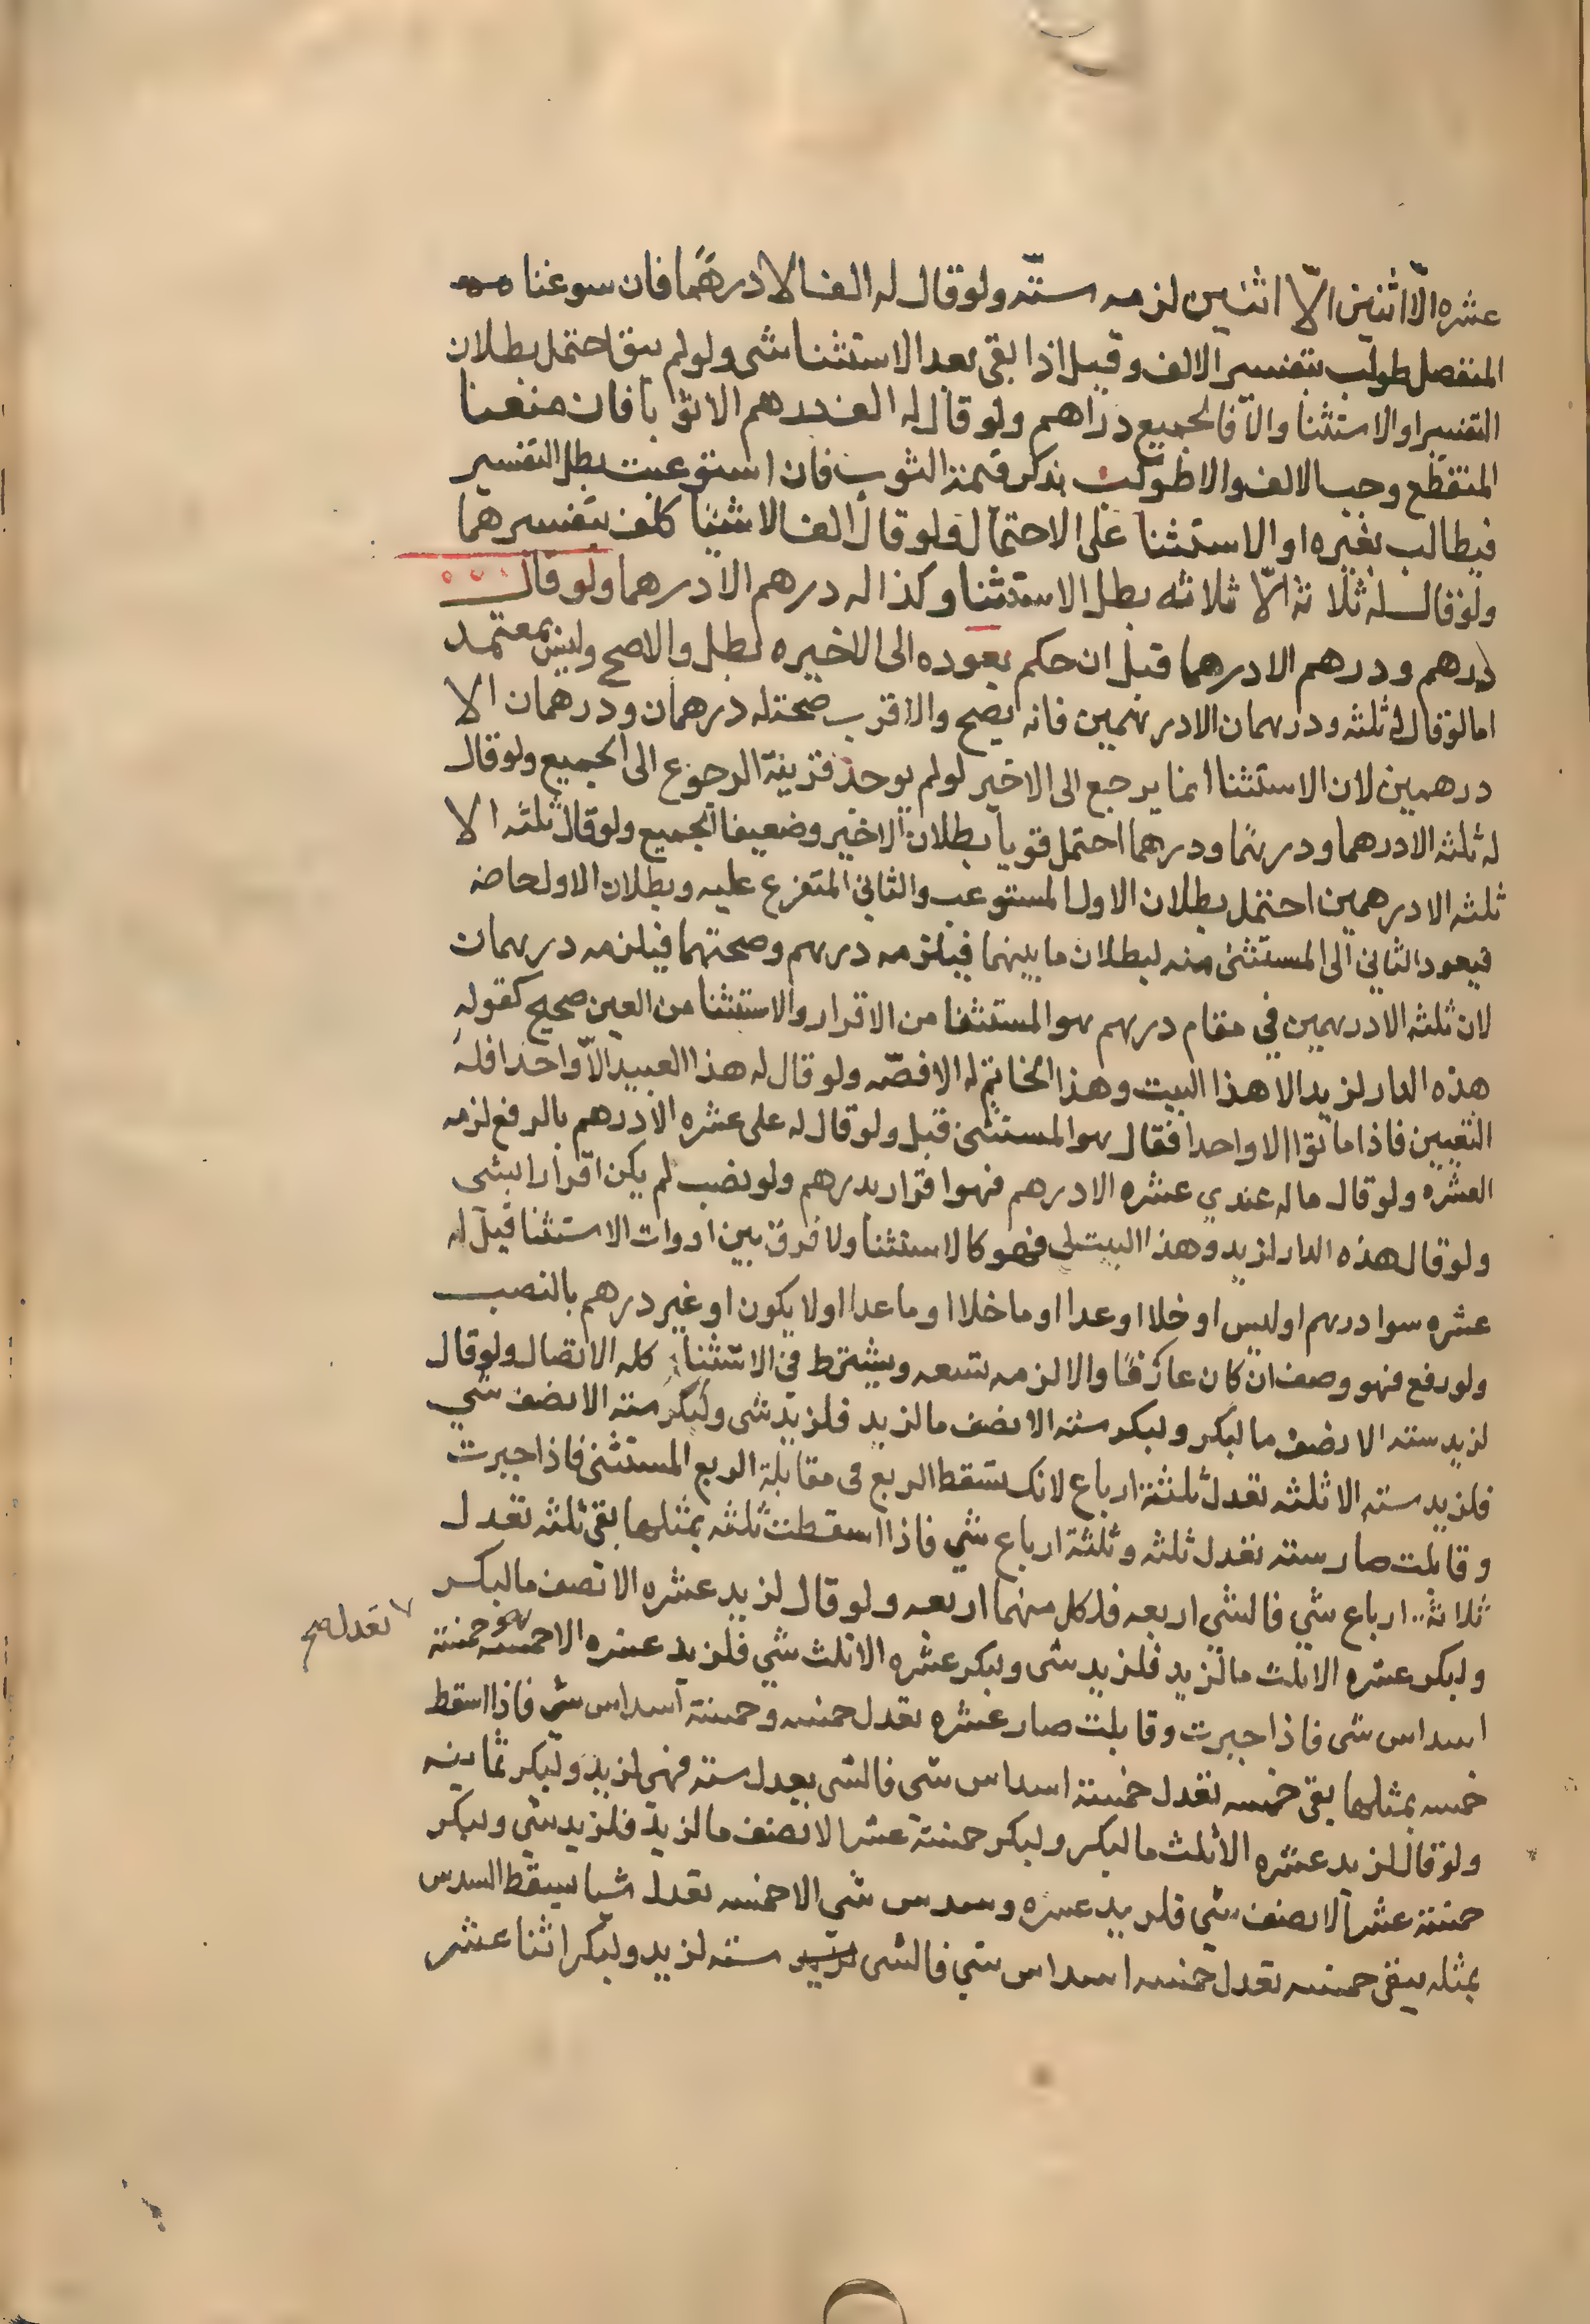 عشره الّا اثنين الّا اثنين لزمه ستّه ولو قال له الف الا درهما فان سوغنا
المنفصل طولب بتفسير الالف وقبل اذا بقى بعد الاستثنا شى ولو لم يبق احتمل بطلان
التفسير او الاستثنا والا فالجميع دراهم ولو قال له الف درهم الا ثوبا فان منعنا
المنقطع وجب الالف والا طولب بذكر قيمة الثوب فان استوعبت بطل التفسير
فيطالب بغيره او الاستثنا على الاحتمال ولو قال الف الا شيئا كلف بتفسيرهما
ولو قال له ثلاثة الّا ثلاثه بطل الاستثنا وكذا له درهم الا درهما ولو قال
درهم ودرهم الا درهما قيل ان حكم بعوده الى الاخيره بطل والا صح وليس بمعتمد
اما لو قال له ثلثه ودرهمان الا درهمين فانه يصح والاقرب صحة له درهمان ودرهمان الا
درهمين لان الاستثنا انما يرجع الى الاخير لو لم يوجد قرينة الرجوع الى الجميع ولو قال
له ثلثه الا درهما ودرهما ودرهما احتمل قويا بطلان الاخير وضعيفا الجميع ولو قال ثلثه الا
ثلثه الا درهمين احتمل بطلان الاول المستوعب والثاني المتفرع عليه وبطلان الاول خاصه
فيعود الثاني الى المستثنى منه لبطلان ما بينهما فيلزمه درهم وصحتهما فيلزمه درهمان
لان ثلثه الا درهمين في مقام درهم هو المستثنا من الاقرار والاستثنا من العين صحيح كقوله
هذه الدار لزيد الا هذا البيت وهذا الخاتم له الا فصّه ولو قال له هذا العبيد الّا واحدا فله
التعيين فاذا ماتوا الا واحدا فقال هو المستثنى قبل ولو قال له على عشره الا درهم بالرفع لزمه
العشره ولو قال ما له عندي عشره الا درهم فهو اقرار بدرهم ولو نصب لم يكن اقرارا بشى
ولو قال هذه الدار لزيد وهذا البيت لى فهو كالاستثنا ولا فرق بين ادوات الاستثنا قبل له
عشره سوا درهم او ليس او خلا او عدا او ما خلا او ما عدا او لا يكون او غير درهم بالنصب
ولو رفع فهو وصف ان كان عارفا والا لزمه تسعه ويشترط في الاستثنا كله الاتصال ولو قال
لزيد سته الا نصف ما لبكر ولبكر سته الا نصف ما لزيد فلزيد شى ولبكر سته الا نصف شي
فلزيد سته الا ثلثه تعدل ثلثة ارباع لانك تسقط الربع فى مقابلة الربع المستثنى فاذا جبرت
وقابلت صار سته تعدل ثلثه وثلثة ارباع شي فاذا اسقطت ثلثه بمثلها بقى ثلثه تعدل
ثلاثة ارباع شي فالشي اربعه فلكل منهما اربعه ولو قال لزيد عشره الا نصف ما لبكر
ولبكر عشره الا ثلث ما لزيد فلزيد شى ولبكر عشره الا ثلث شي فلزيد عشره الا خمسه خمسة
تعدل صح
اسداس شى فاذا جبرت وقابلت صار عشره تعدل خمسه وخمسة اسداس شى فاذا اسقط
خمسه بمثلها بقى خمسه تعدل خمسة اسداس شى فالشى يعدل سته فهي لزيد ولبكر ثمانيه
ولو قال لزيد عشره الا ثلث ما لبكر ولبكر خمسة عشر الا نصف ما لزيد فلزيد شي ولبكر
خمسة عشر الا نصف شي فلزيد عشره وسدس شي الا خمسه تعدل شيا يسقط السدس
بمثله يبقى خمسه تعدل خمسه اسداس شي فالشى سته لزيد ولبكر اثنا عشر